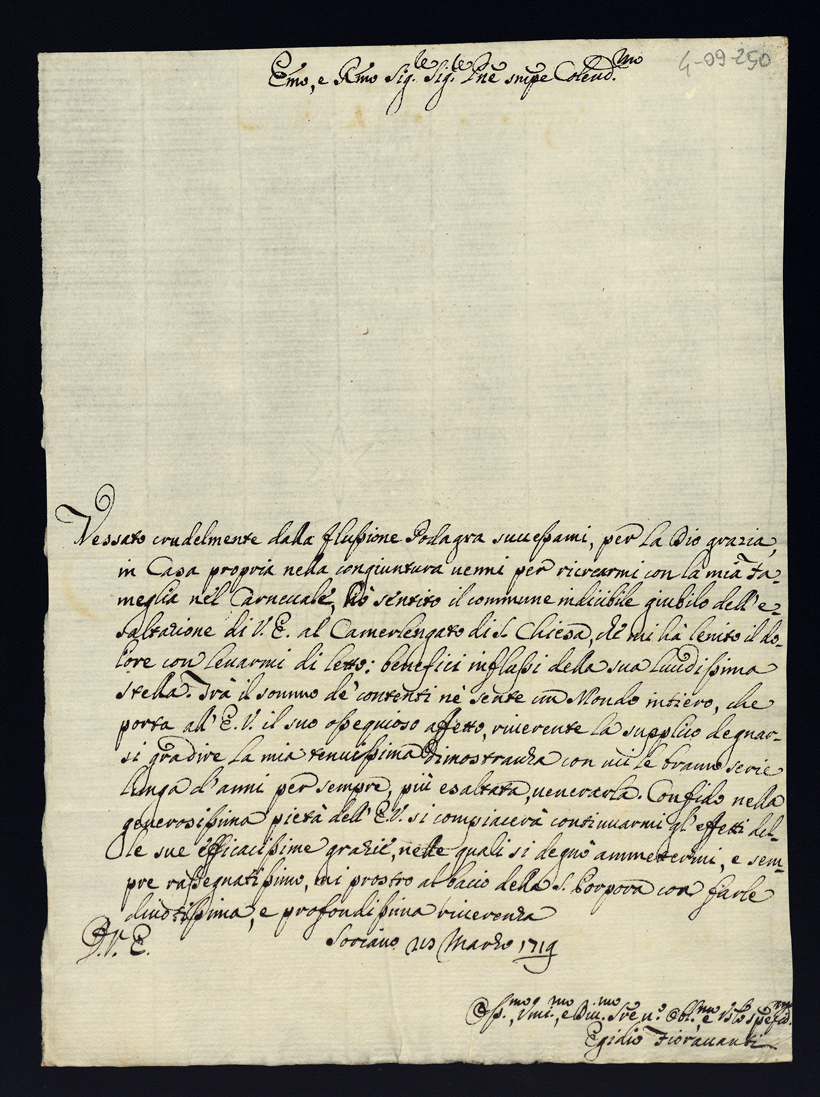 4-09-250
Emo, e Rmo Sig.re Sig.re Pne smpe Colend.mo
Vessato crudelmente dalla flussione Podagra successami, per la Dio grazia,
in Casa propria nella congiuntura venni per ricrearmi con la mia Fa-
meglia nel Carnevale, hò sentito il commune indicibile giubilo dell'e-
saltazione di V. E. al Camerlengato di S. Chiesa, che mi hà lenito il do-
lore con levarmi di letto: benefici inflassi della sua lucidissima
stella. Trà il sommo de' contenti nè sente un Mondo intiero, che
porta all'E. V. il suo ossequioso affetto, riverente la supplico degnar-
si gradire la mia tenuissima dimostranza con cui le bramo serie
lunga d'anni per sempre, più esaltata, venerarla. Confido nella
generosissima pietà dell'E. V. si compiacerà continuarmi gl'effetti del-
le sue efficacissime grazie, nelle quali si degnò ammettermi, e sem-
pre rassegnatissimo, mi prostro al bacio della S. Porpora con farle
divotissima, e profondissima riverenza
D. V. E. Soriano 13 Marzo 1719
Egidio Fioravanti